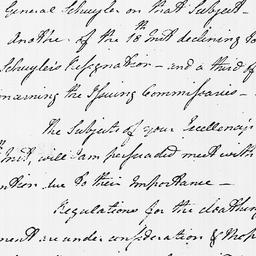 General Schuyler on that Subject-
Another of the 18th Inst declining
Schuylers Resignation - and a third
the Issuing Commissaries -
The Subjects of your Excellency's
Inst, will I am persuaded meet with
to their Importance -
Regulations for the cloathing
are under consideration &